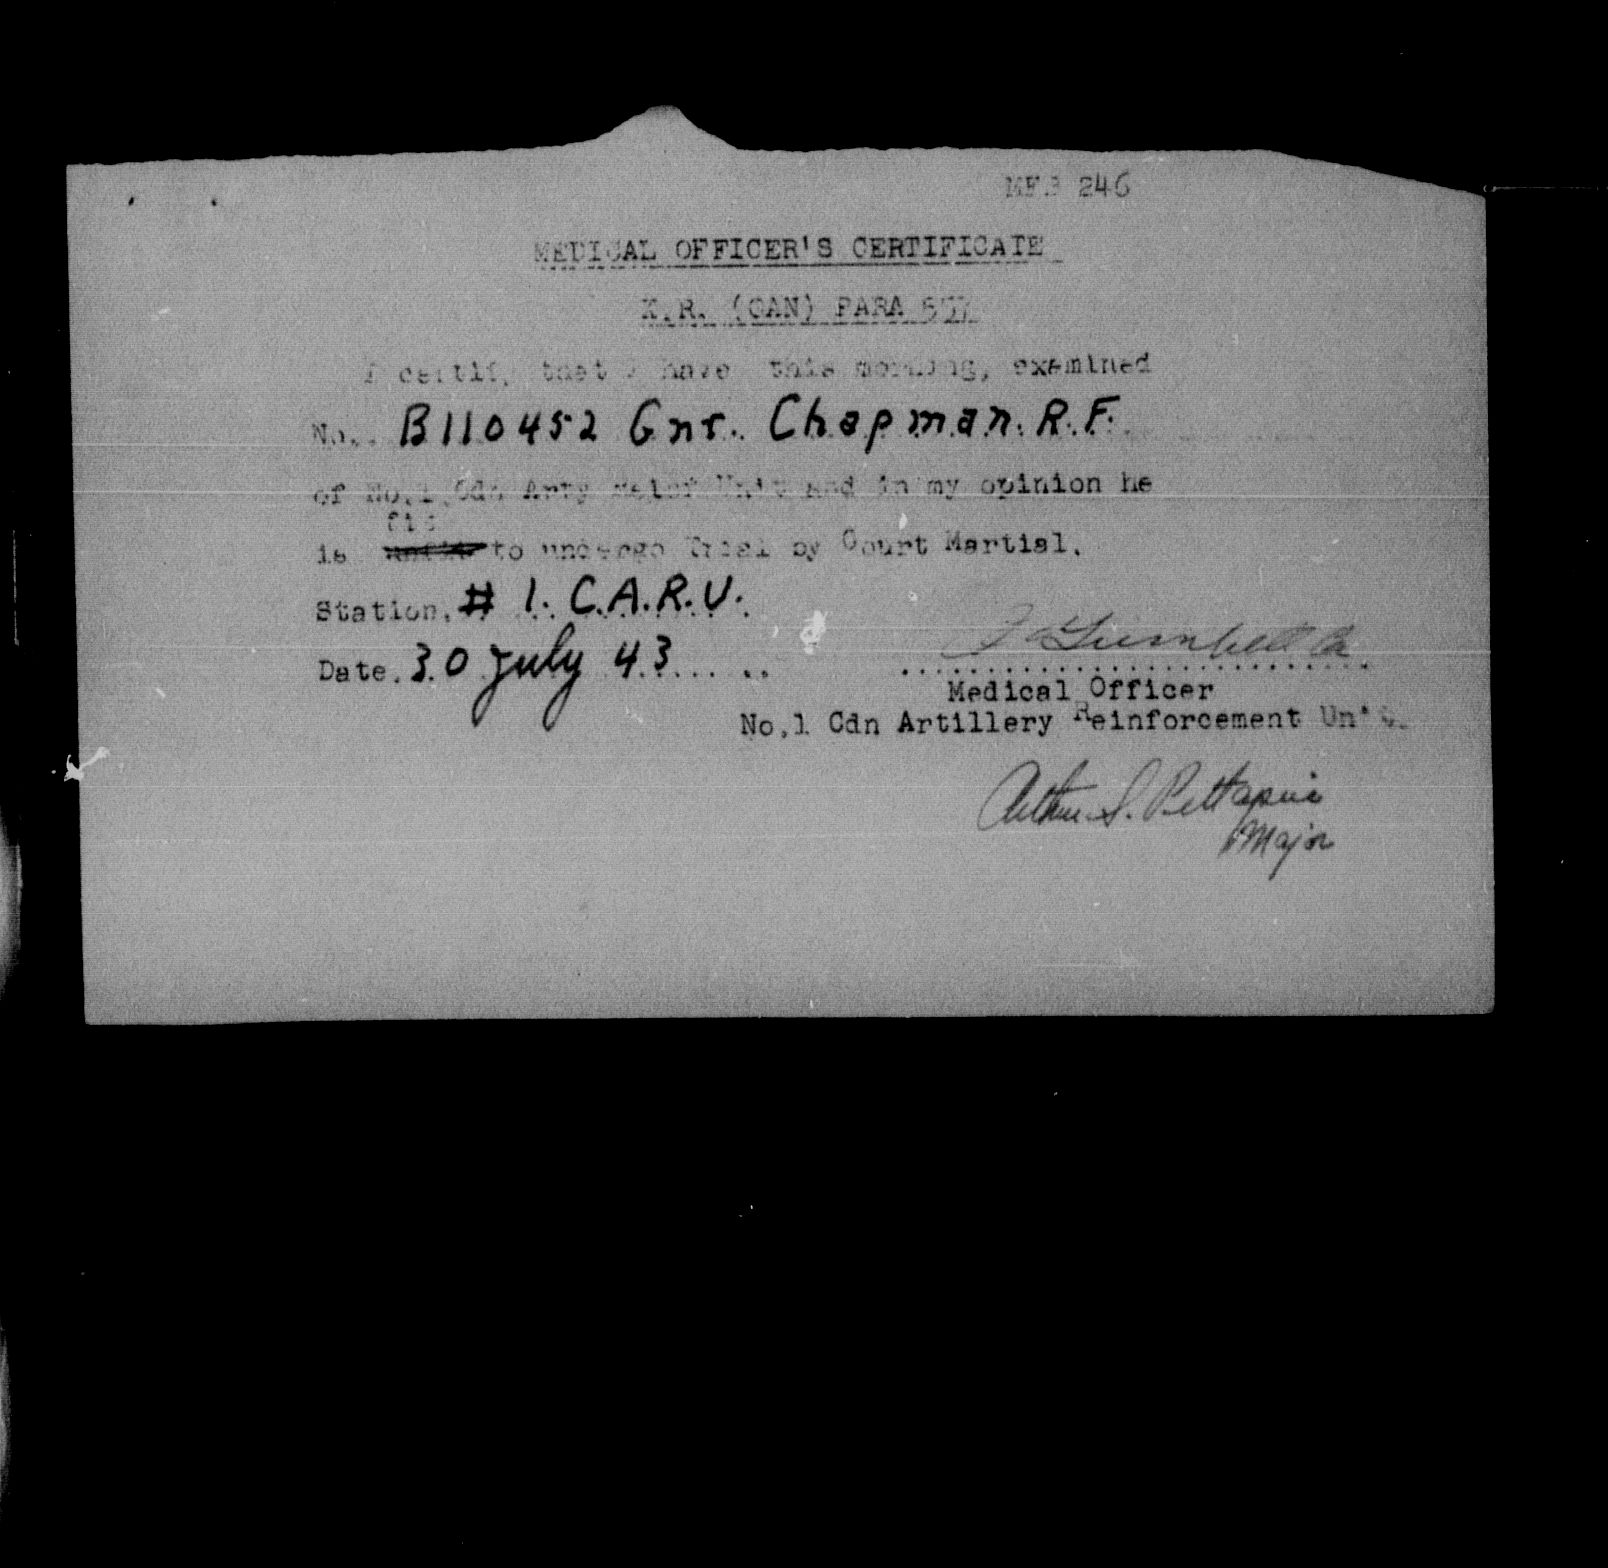 246
MEDICAL OFFICER'S CERTIFICATE
K.R. (CAN) PARA
I certify that I have this morning, examined
No.. B110452 Gnr. Chapman. R.F.
of No.1 Cdn Arty Unit and in my opinion he
fit
is to undergo Trial by Court Martial.
Station. # 1. C.A.R.U.
Date. 30 July 43
Medical Officer
No.1 Cdn Artillery Reinforcement Unit.
Arthur S.
Major